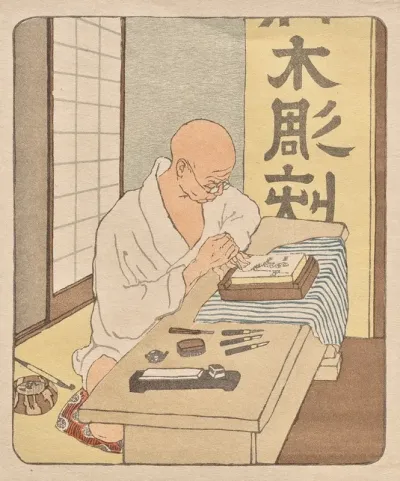 木彫刻